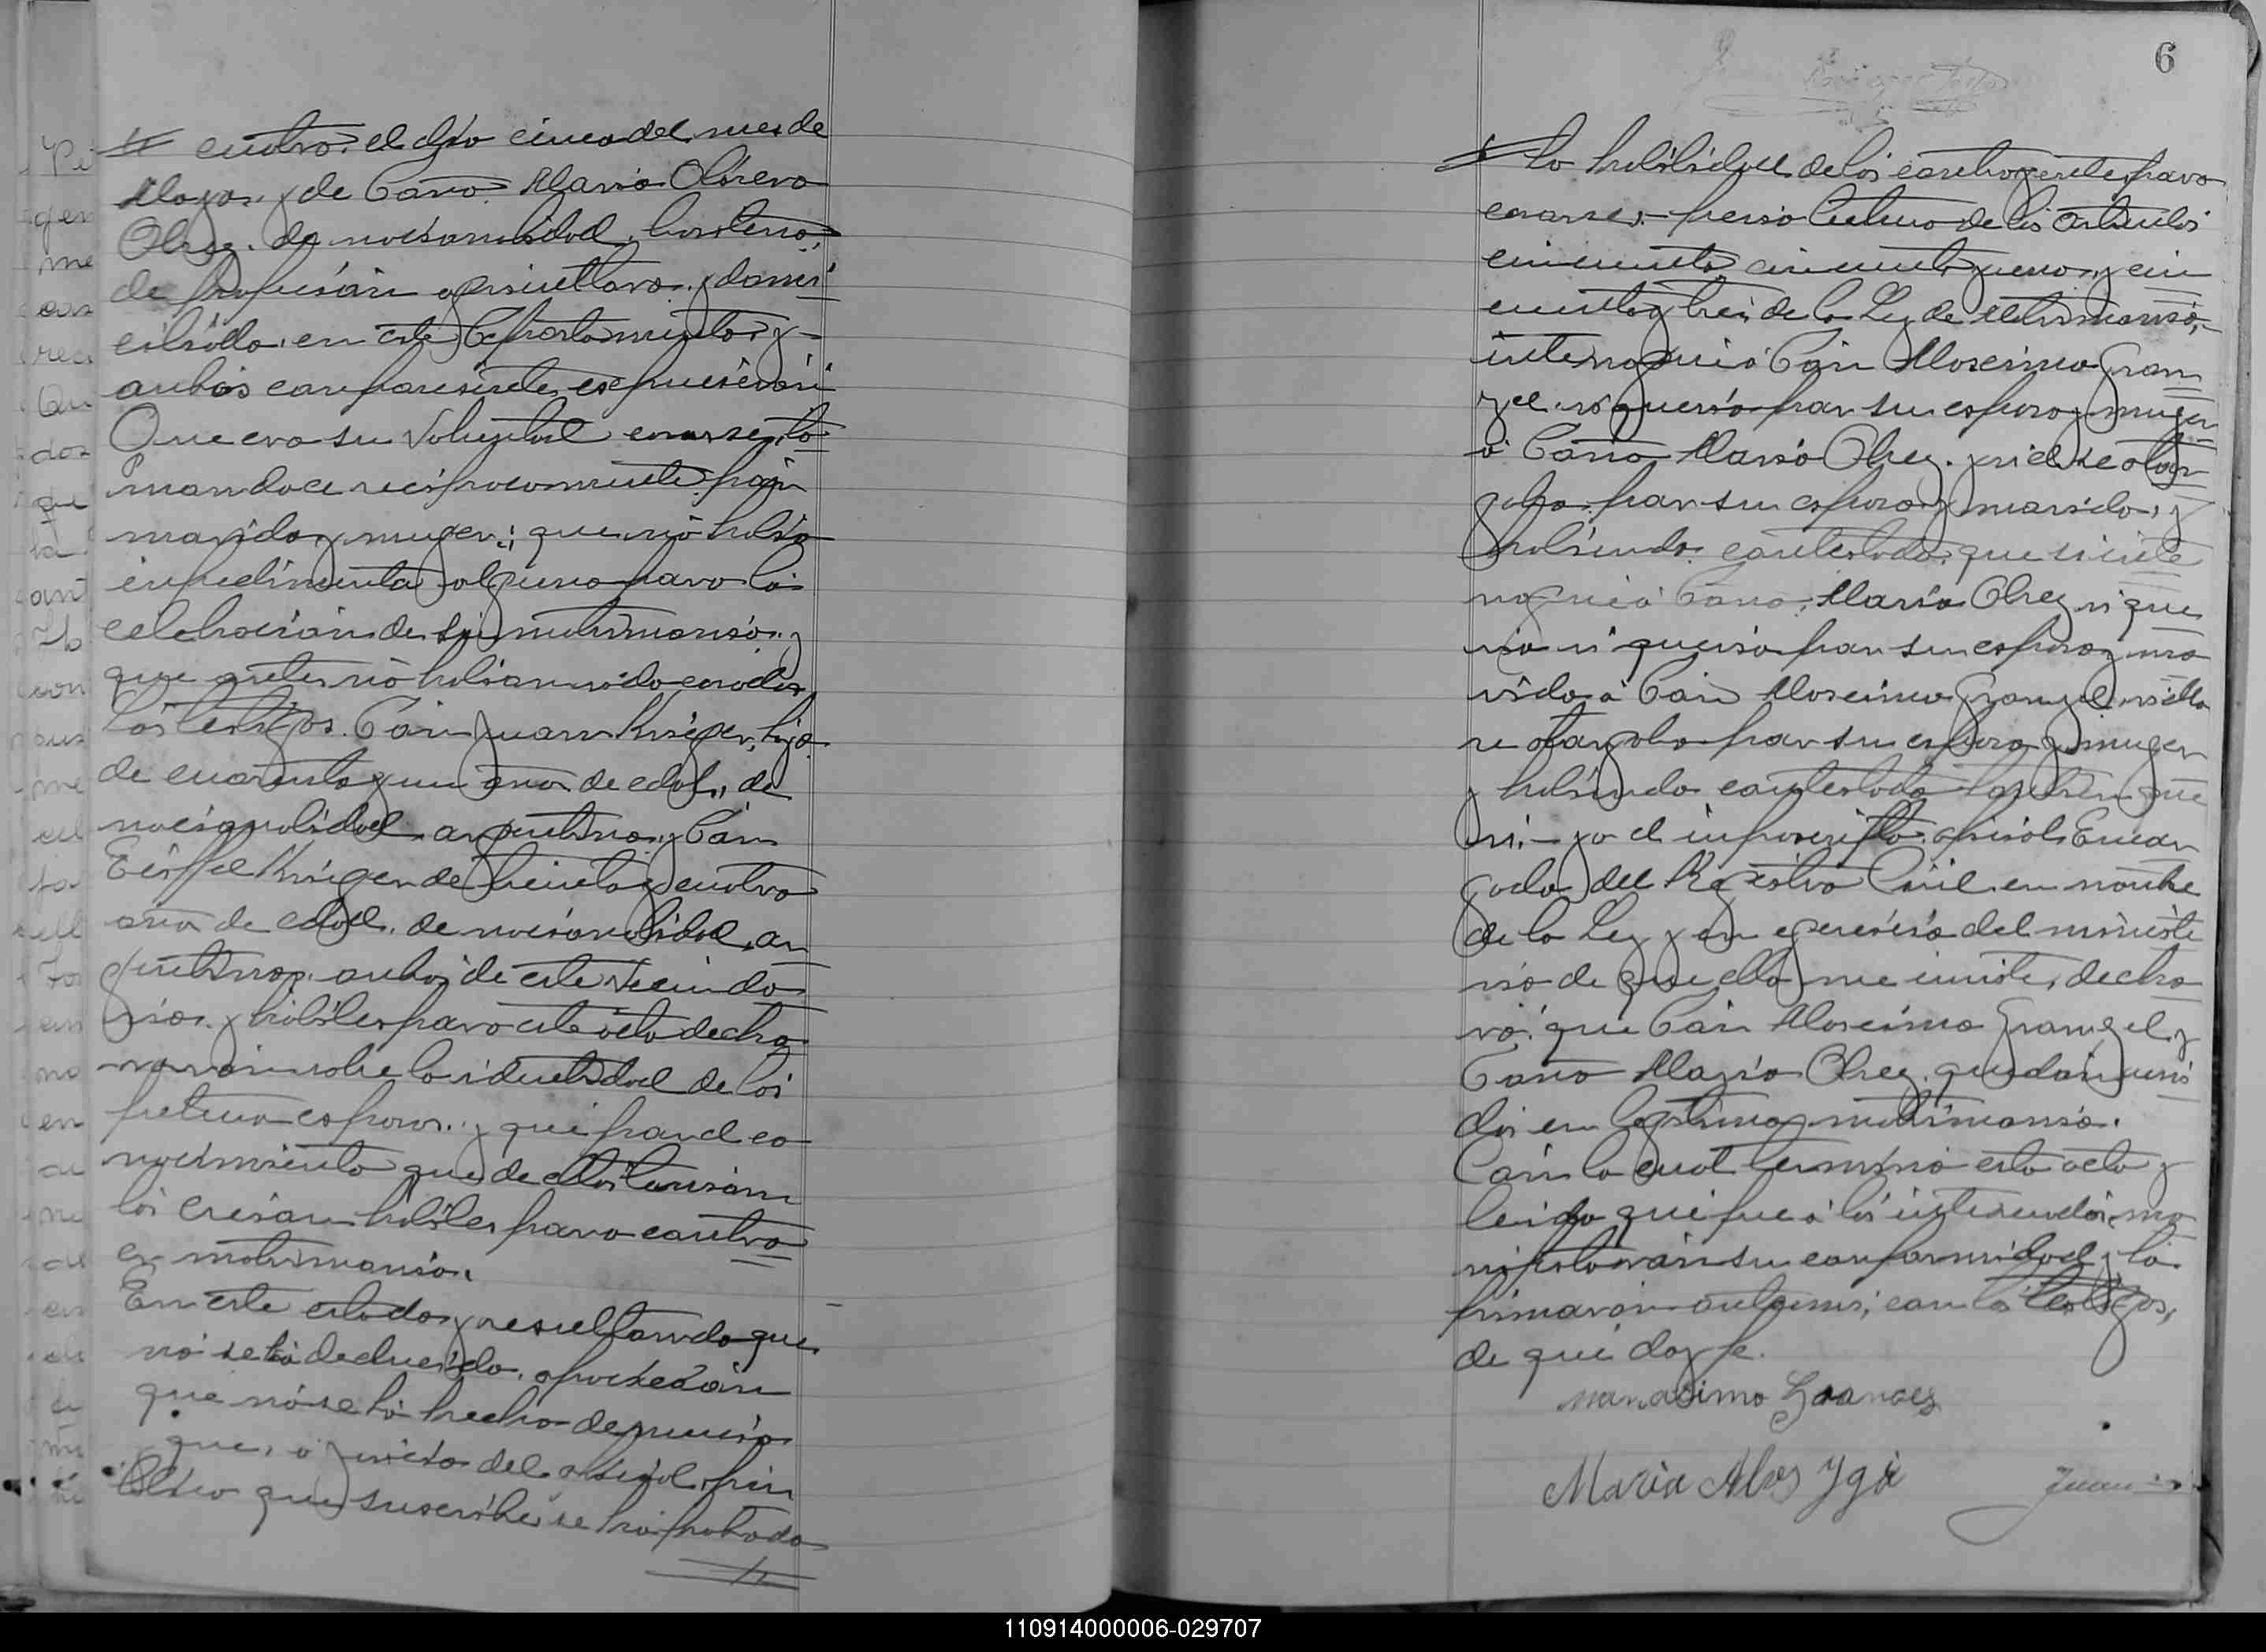 cuatro. el dia cinco del mes de
Mayo. y de Doña Maria Olivera
Alvez. de nacionalidad, brasilera,
de profesión agricultora. y domi
ciliada. en este Departamento. y
ambos comparesientes, espucieron
Que era su voluntad casarse, to
mandoce reciprocamente por
marido y muger; que nó había
impedimento alguno para la
celebración de su matrimonio. y
que antes nó habian sido casados
Los testigos. Don Juan Kriger, hijo
de cuarenta y un años de edad, de
nacionalidad. argentina. y Don
Kriger de treinta y cuatro
años de edad. de nacionalidad, ar
gentina. ambos de este vecinda
rio. y hábiles para este acto declara
raron sobre la identidad de los
futuros esposos. y que por el co
nocimiento que de ellos tenian
los creian hábiles para contra
er matrimonio.
En este estado y resultando que
nó se há deducido. oposición
que nó se há hecho denuncia
que, á juicio del oficial pú
blico que suscribe se há probado
6
la habilidad de los contrayentes para
casarse. previa lectura de los articulos
cincuenta, cincuenta y uno. y cin
cuenta y tres de la Ley de Matrimonio,
interrogué á Don Maximo Gran
gel. si queria por su esposa y muger
á Doña Maria Alvez. y si él se otor
gaba. por su esposo y marido, y
habiendo. contestado. que si inte
rrogué á Doña. Maria Alvez si que
ria si queria por su esposo y ma
rido á Don Maximo Grangel. si ella
se otorgaba por su esposa y muger
y habiendo contestado tambien que
si. yo el infrascripto. oficial Encar
gado del Registro Civil en nombre
de la Ley y en egercisio del ministe
rio de que ella me inviste, decla
ró. que Don Maximo Grangel. y
Doña Maria Alvez. quedan uni
dos en legitimo matrimonio.
Con lo cual terminó esta acta y
leida que fué á los interesados, ma
nifestaron su conformidad y la
firmaron ante mi, con los testigos,
de que doy fé.
Maria Alves
Juan
110914000006-029707